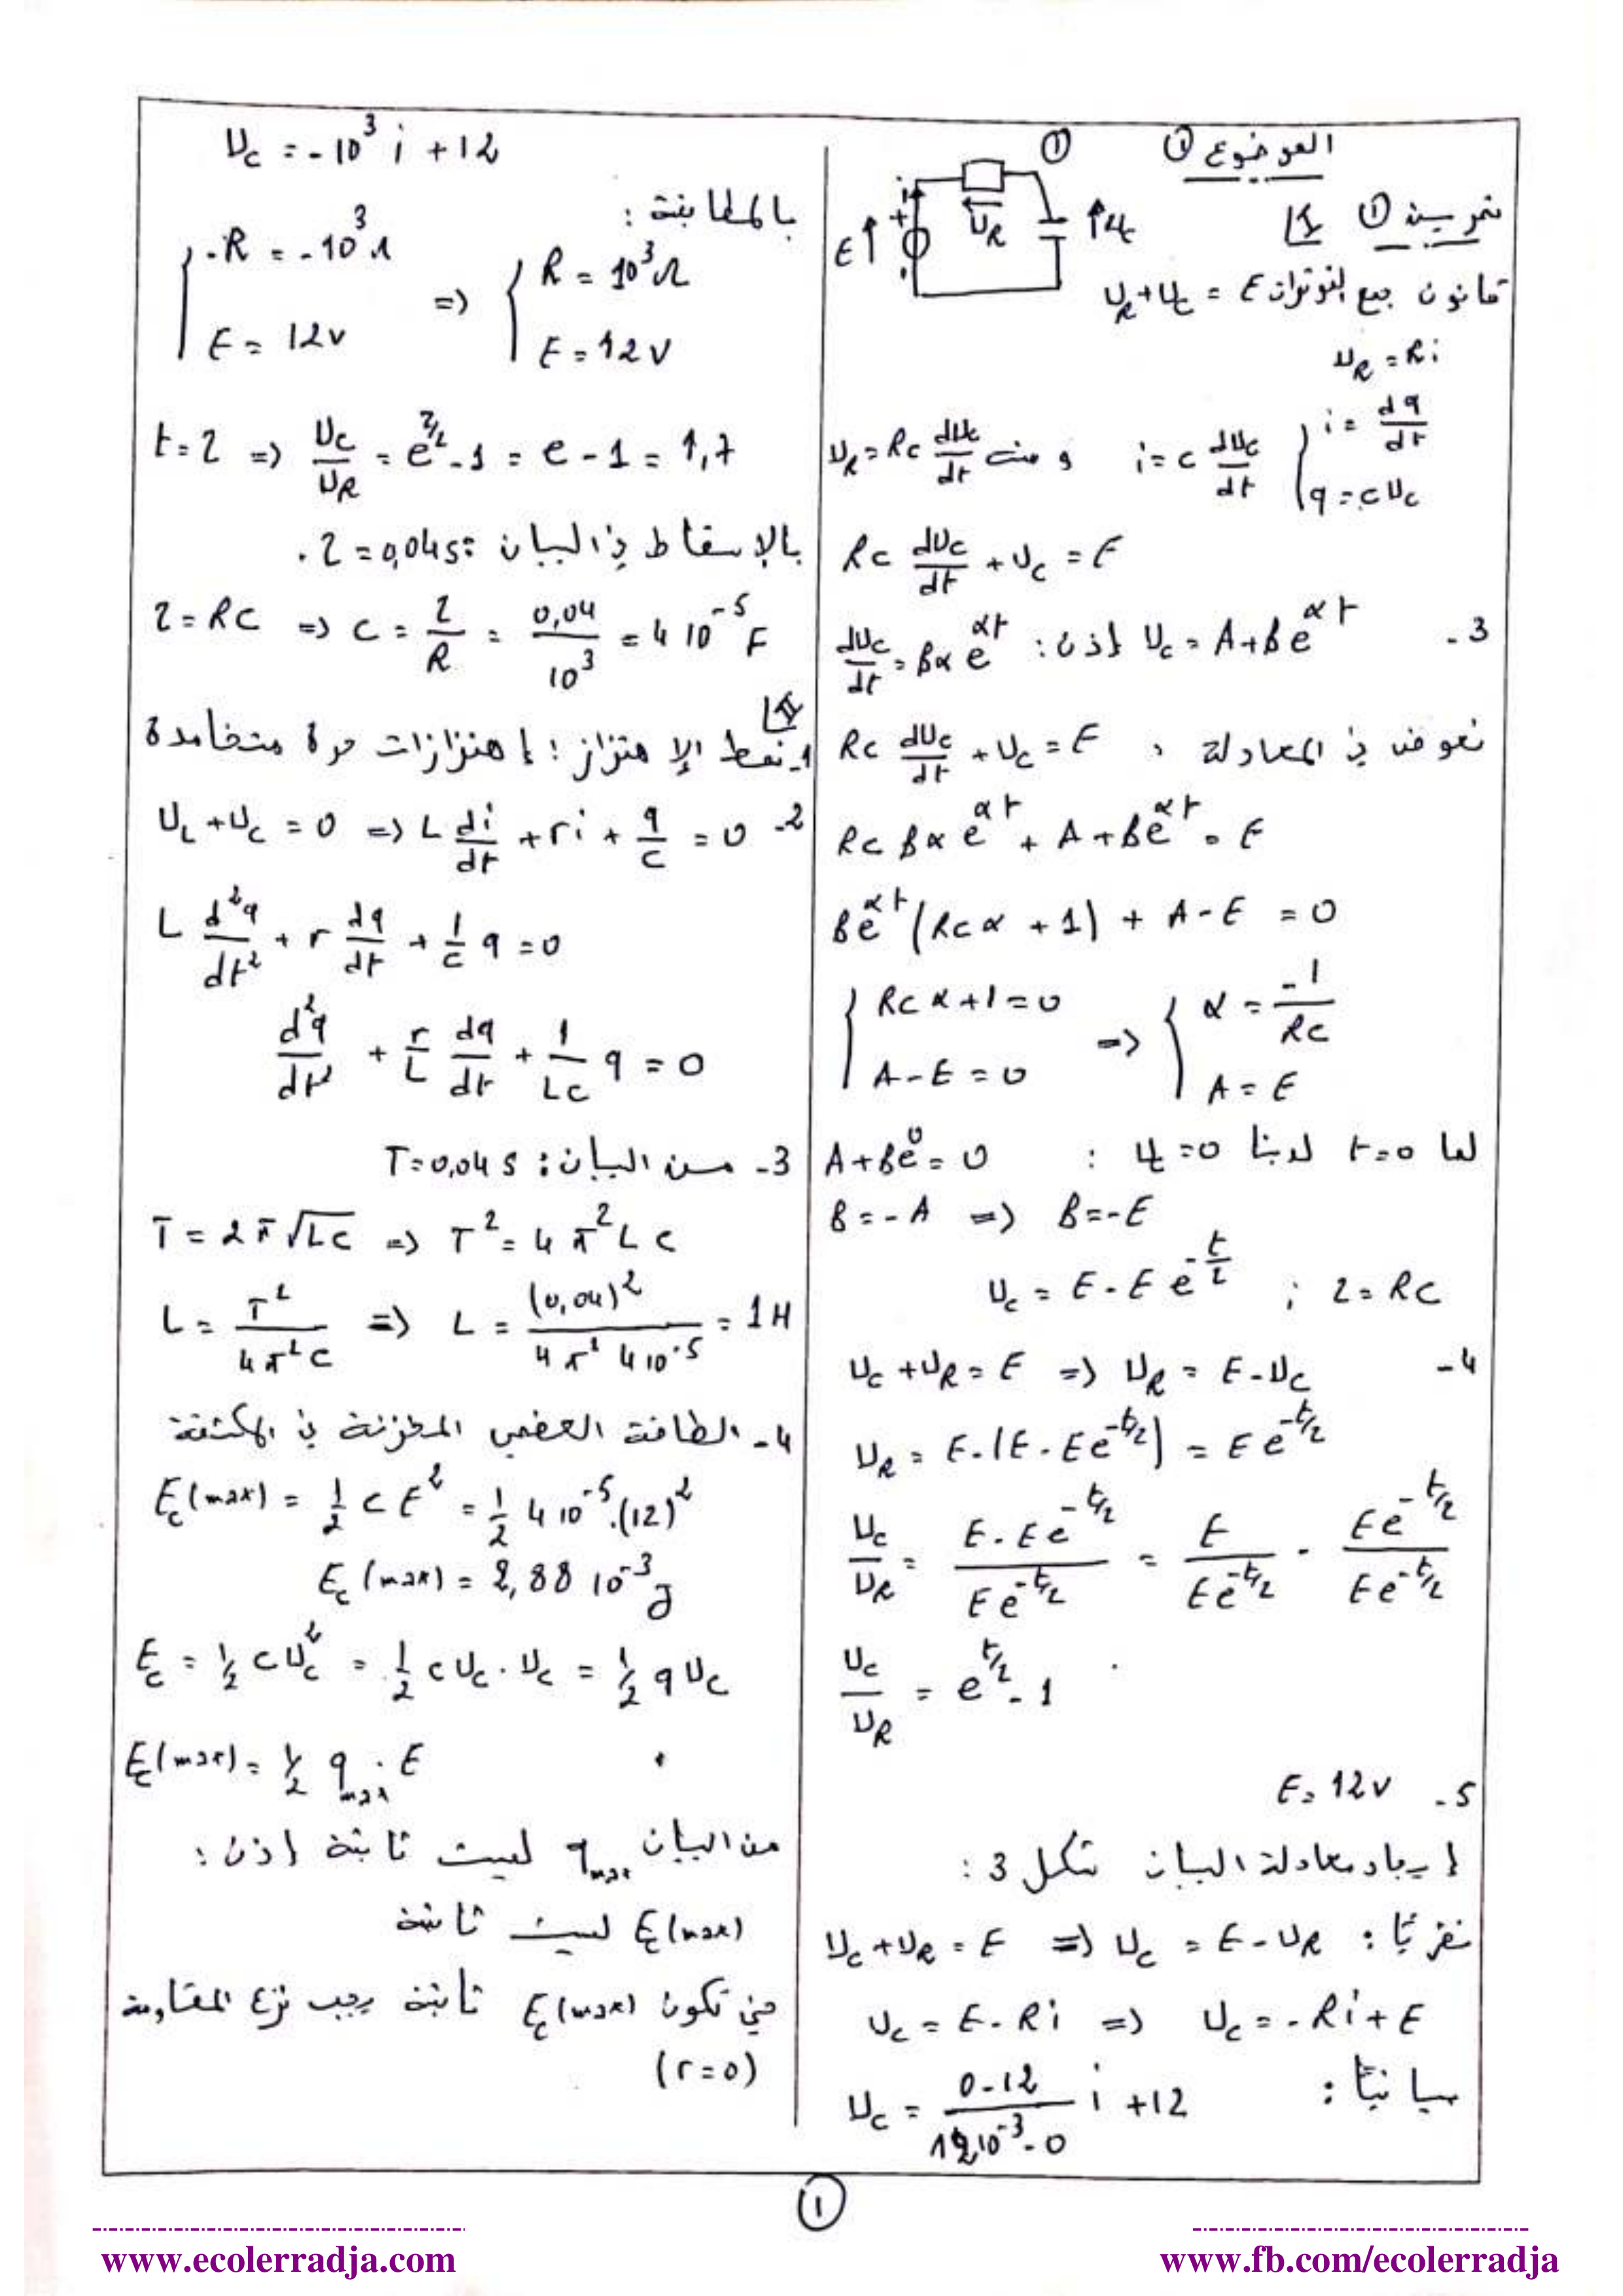 الموضوع ①
①
تمرين ① I
E i + - U_R U_C
قانون جمع التوترات U_R + U_C = E
U_R = Ri
i = dq/dt
q = CU_C
i = C dU_C/dt ومنه U_R = RC dU_C/dt
RC dU_C/dt + U_C = E
3- U_C = A + Be^{αt} إذن: dU_C/dt = Bα e^{αt}
نعوض في المعادلة: RC dU_C/dt + U_C = E
RC Bα e^{αt} + A + Be^{αt} = E
Be^{αt} (RCα + 1) + A - E = 0
{ RCα + 1 = 0 ; A - E = 0 => { α = -1/RC ; A = E
لما t=0 لدينا U_C = 0 : A + Be^0 = 0
B = -A => B = -E
U_C = E - E e^{-t/τ} ; τ = RC
4- U_C + U_R = E => U_R = E - U_C
U_R = E - (E - Ee^{-t/τ}) = E e^{-t/τ}
U_C/U_R = (E - Ee^{-t/τ})/(Ee^{-t/τ}) = E/(Ee^{-t/τ}) - (Ee^{-t/τ})/(Ee^{-t/τ})
U_C/U_R = e^{t/τ} - 1
5- E = 12V
إيجاد معادلة البيان شكل 3:
نظريًا: U_C + U_R = E => U_C = E - U_R
U_C = E - Ri => U_C = -Ri + E
بيانيًا: U_C = (0 - 12)/(12 10^{-3} - 0) i + 12
U_C = -10^3 i + 12
بالمطابقة:
{ -R = -10^3 Ω ; E = 12V => { R = 10^3 Ω ; E = 12V
t = τ => U_C/U_R = e^{τ/τ} - 1 = e - 1 = 1,7
بالإسقاط في البيان: τ = 0,04s.
τ = RC => C = τ/R = 0,04/10^3 = 4 10^{-5} F
II
1- نمط الإهتزاز: إهتزازات حرة متخامدة
2- U_L + U_C = 0 => L di/dt + ri + q/C = 0
L d²q/dt² + r dq/dt + 1/C q = 0
d²q/dt² + r/L dq/dt + 1/LC q = 0
3- من البيان: T = 0,04 s
T = 2π√LC => T² = 4π² L C
L = T²/4π²C => L = (0,04)²/(4π² 4 10^{-5}) = 1H
4- الطاقة العظمى المخزنة في المكثفة
E_C(max) = 1/2 C E² = 1/2 4 10^{-5}.(12)²
E_C(max) = 2,88 10^{-3} J
E_C = 1/2 C U_C² = 1/2 C U_C . U_C = 1/2 q U_C
E_C(max) = 1/2 q_max . E
من البيان q_max ليست ثابتة إذن:
E_C(max) ليست ثابتة
حتى تكون E_C(max) ثابتة يجب نزع المقاومة
(r = 0)
①
www.ecolerradja.com
www.fb.com/ecolerradja